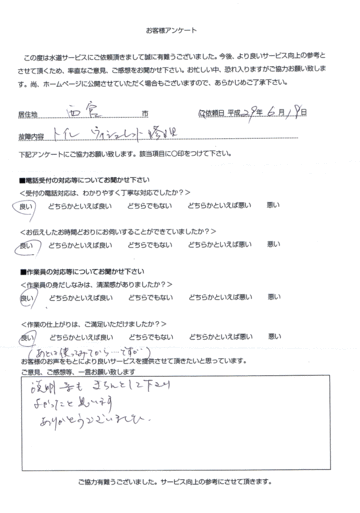 お客様アンケート
この度は水道サービスにご依頼頂きまして誠に有難うございました。今後、より良いサービス向上の参考と
させて頂くため、率直なご意見、ご感想をお聞かせ下さい。お忙しい中、恐れ入りますがご協力お願い致しま
す。尚、ホームページに公開させていただく場合もございますので、あらかじめご了承下さい。
居住地 西宮 市 ご依頼日 平成29年6月19日
故障内容 トイレ ウォシュレット修理
下記アンケートにご協力お願い致します。該当項目に○印をつけて下さい。
■電話受付の対応等についてお聞かせ下さい
<受付の電話対応は、わかりやすく丁寧な対応でしたか?>
良い どちらかといえば良い どちらでもない どちらかといえば悪い 悪い
<お伝えしたお時間どおりにお伺いすることができていましたか?>
良い どちらかといえば良い どちらでもない どちらかといえば悪い 悪い
■作業員の対応等についてお聞かせ下さい
<作業員の身だしなみは、清潔感がありましたか?>
良い どちらかといえば良い どちらでもない どちらかといえば悪い 悪い
<作業の仕上がりは、ご満足いただけましたか?>
良い どちらかといえば良い どちらでもない どちらかといえば悪い 悪い
(あとは使ってみてから…ですが)
お客様のお声をもとにより良いサービスを提供させて頂きたいと思っています。
ご意見、ご感想等、一言お願い致します
説明等も きちんとして下さり
よかったと思います
ありがとうございました。
ご協力有難うございました。サービス向上の参考にさせて頂きます。